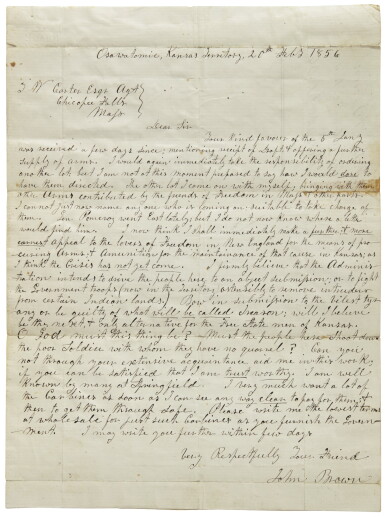 Osawatomie, Kansas Territory, 20th Feby 1856
T W Carter Esqr Agt
Chicopee Falls
Mass
Dear Sir
Your kind favor of the 5th Jany
was received a few days since; mentioning receipt of Draft & offering a further
supply of arms. I would again immediately take the responsibility of ordering
another lot but I am not at this moment prepared to say how I would dare to
have them directed. The other lot I came on with myself; bringing with them
other Arms contributed by the friends of Freedom in
I cannot just now name any one who is coming on suitable to take charge of
them. Gen Pomeroy went East lately; but I do not now know where a letter
would find him. I now think I shall immediately make a further & more
earnest appeal to the lovers of Freedom in New England for the means of pro-
curing Arms & Amunition for the maintainance of that cause in Kansas; as
I think the Crisis has not yet come. I firmly believe that the Adminis-
tration intends to drive the people here to an abject submission; or to fight
the Government troops (now in the Territory ostensibly to remove intruders
from certain Indian lands). Bow in submission to the vilest tyr-
any or be guilty of what will be called treason; will I believe
be the next & only alternative for the Free State men of Kansas.
O God must this thing be? Must the people here shoot down
the poor Soldier with whom they have no quarrel? Can you
not through your extensive acquaintance aid me in this work;
if you can be satisfied that I am trust worthy. I am well
known by many at Springfield. I very much want a lot of
the Carbines as soon as I can see any way clear to pay for them; &
then to get them through safe. Please write me the lowest terms
at wholesale for just such Carbines as you furnish the Govern-
ment. I may write you further within few days
Very Respectfully Your Friend
John Brown